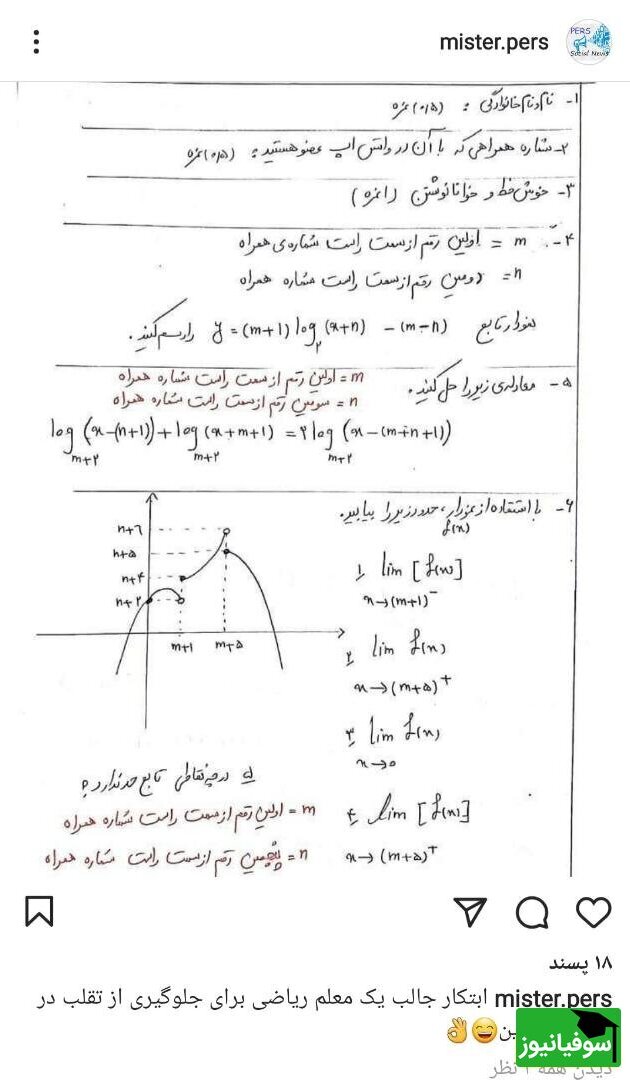 mister.pers
PERS
Social News
۱- نام و نام خانوادگی : (۰/۵) نمره
۲- شماره همراهی که با آن در واتس اپ عضو هستید : (۰/۵) نمره
۳- خوش خط و خوانا نوشتن (۱ نمره)
۴- m = اولین رقم از سمت راست شماره‌ی همراه
n = دومین رقم از سمت راست شماره همراه
نمودار تابع y = (m+1) log₂ (x+n) - (m-n) را رسم کنید.
۵- معادله‌ی زیر را حل کنید.
m = اولین رقم از سمت راست شماره همراه
n = سومین رقم از سمت راست شماره همراه
log (x-(n+1)) + log (x+m+1) = ۲ log (x-(m+n+1))
m+۲ m+۲ m+۲
۶- با استفاده از نمودار، حدود زیر را بیابید.
f(x)
n+۶
n+۵
n+۴
n+۲
m+۱ m+۵
۱) lim [f(x)]
x→(m+۱)⁻
۲) lim f(x)
x→(m+۵)⁺
۳) lim f(x)
x→۰
۴) lim [f(x)]
x→(m+۵)⁺
۵) در چه نقاطی تابع حد ندارد؟
m = اولین رقم از سمت راست شماره همراه
n = پنجمین رقم از سمت راست شماره همراه
۱۸ پسند
mister.pers ابتکار جالب یک معلم ریاضی برای جلوگیری از تقلب در
ین😄👌
سوفیانیوز
دیدن همه ۲ نظر